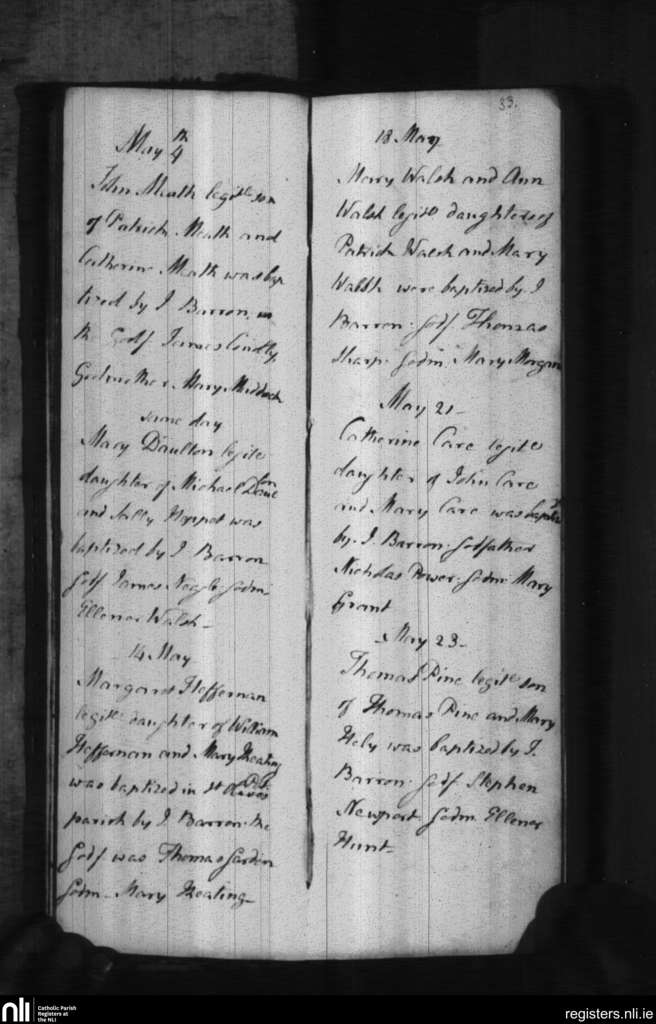 May 4th
John Meath legitte son
of Patrick Meath and
Catherine Meath was bap
tized by J Barron
the Godf James
Godmother Mary Murdock
same day
Mary Daulton legite
daughter of Michael Daulton
and Sally was
baptized by J Barron
Godf James Nagle Godm
Ellener Walsh
14 May
Margaret Heffernan
legitte daughter of William
Heffernan and Mary Keating
was baptized in St
parish by J Barron the
Godf was Thomas
Godm Mary Keating
33.
18 May
Mary Walsh and Ann
Walsh legitte daughters of
Patrick Walsh and Mary
Walsh were baptized by J
Barron Godf Thomas
Sharp Godm Mary Morgan
May 21
Catherine Care legitte
daughter of John Care
and Mary Care was
by J. Barron Godfather
Nicholas Power Godm Mary
Grant
May 23
Thomas Pine legitte son
of Thomas Pine and Mary
Hely was baptized by J.
Barron Godf Stephen
Newport Godm Ellener
Hunt
nli
Catholic Parish
Registers at
the NLI
registers.nli.ie